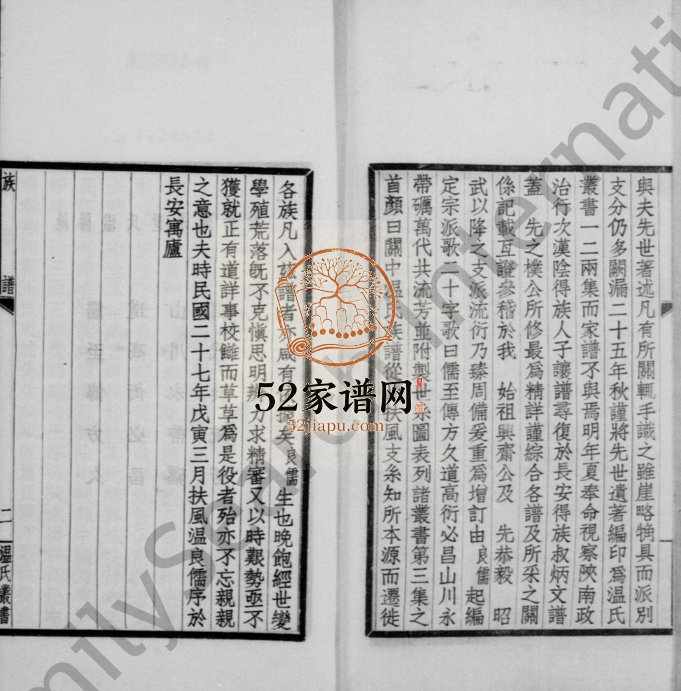 與夫先世著述凡有所關輒手識之雖崖略觕具而派別
支分仍多闕漏二十五年秋謹將先世遺著編印爲温氏
叢書一二兩集而家譜不與焉明年夏奉命視察陝南政
治行次漢陰得族人子讓譜尋復於長安得族叔炳文譜
蓋 先之樸公所修最爲精詳謹綜合各譜及所采之關
係記載互證參稽於我 始祖興齋公及 先恭毅 昭
武以降之支派流衍乃臻周備爰重爲增訂由良儒起編
定宗派歌二十字歌曰儒至傳方久道高衍必昌山川永
帶礪萬代共流芳並附製世系圖表列諸叢書第三集之
首顏曰關中温氏族譜從 扶風支系知所本源而遷徙
各族凡入茲譜者亦咸有 矣良儒生也晚飽經世變
學殖荒落既不克愼思明辨力求精審又以時艱勢亟不
獲就正有道詳事校讎而草草爲是役者殆亦不忘親親
之意也夫時民國二十七年戊寅三月扶風温良儒序於
長安寓廬
族譜
二
温氏叢書
52家谱网
52jiapu.com
FamilySearch International